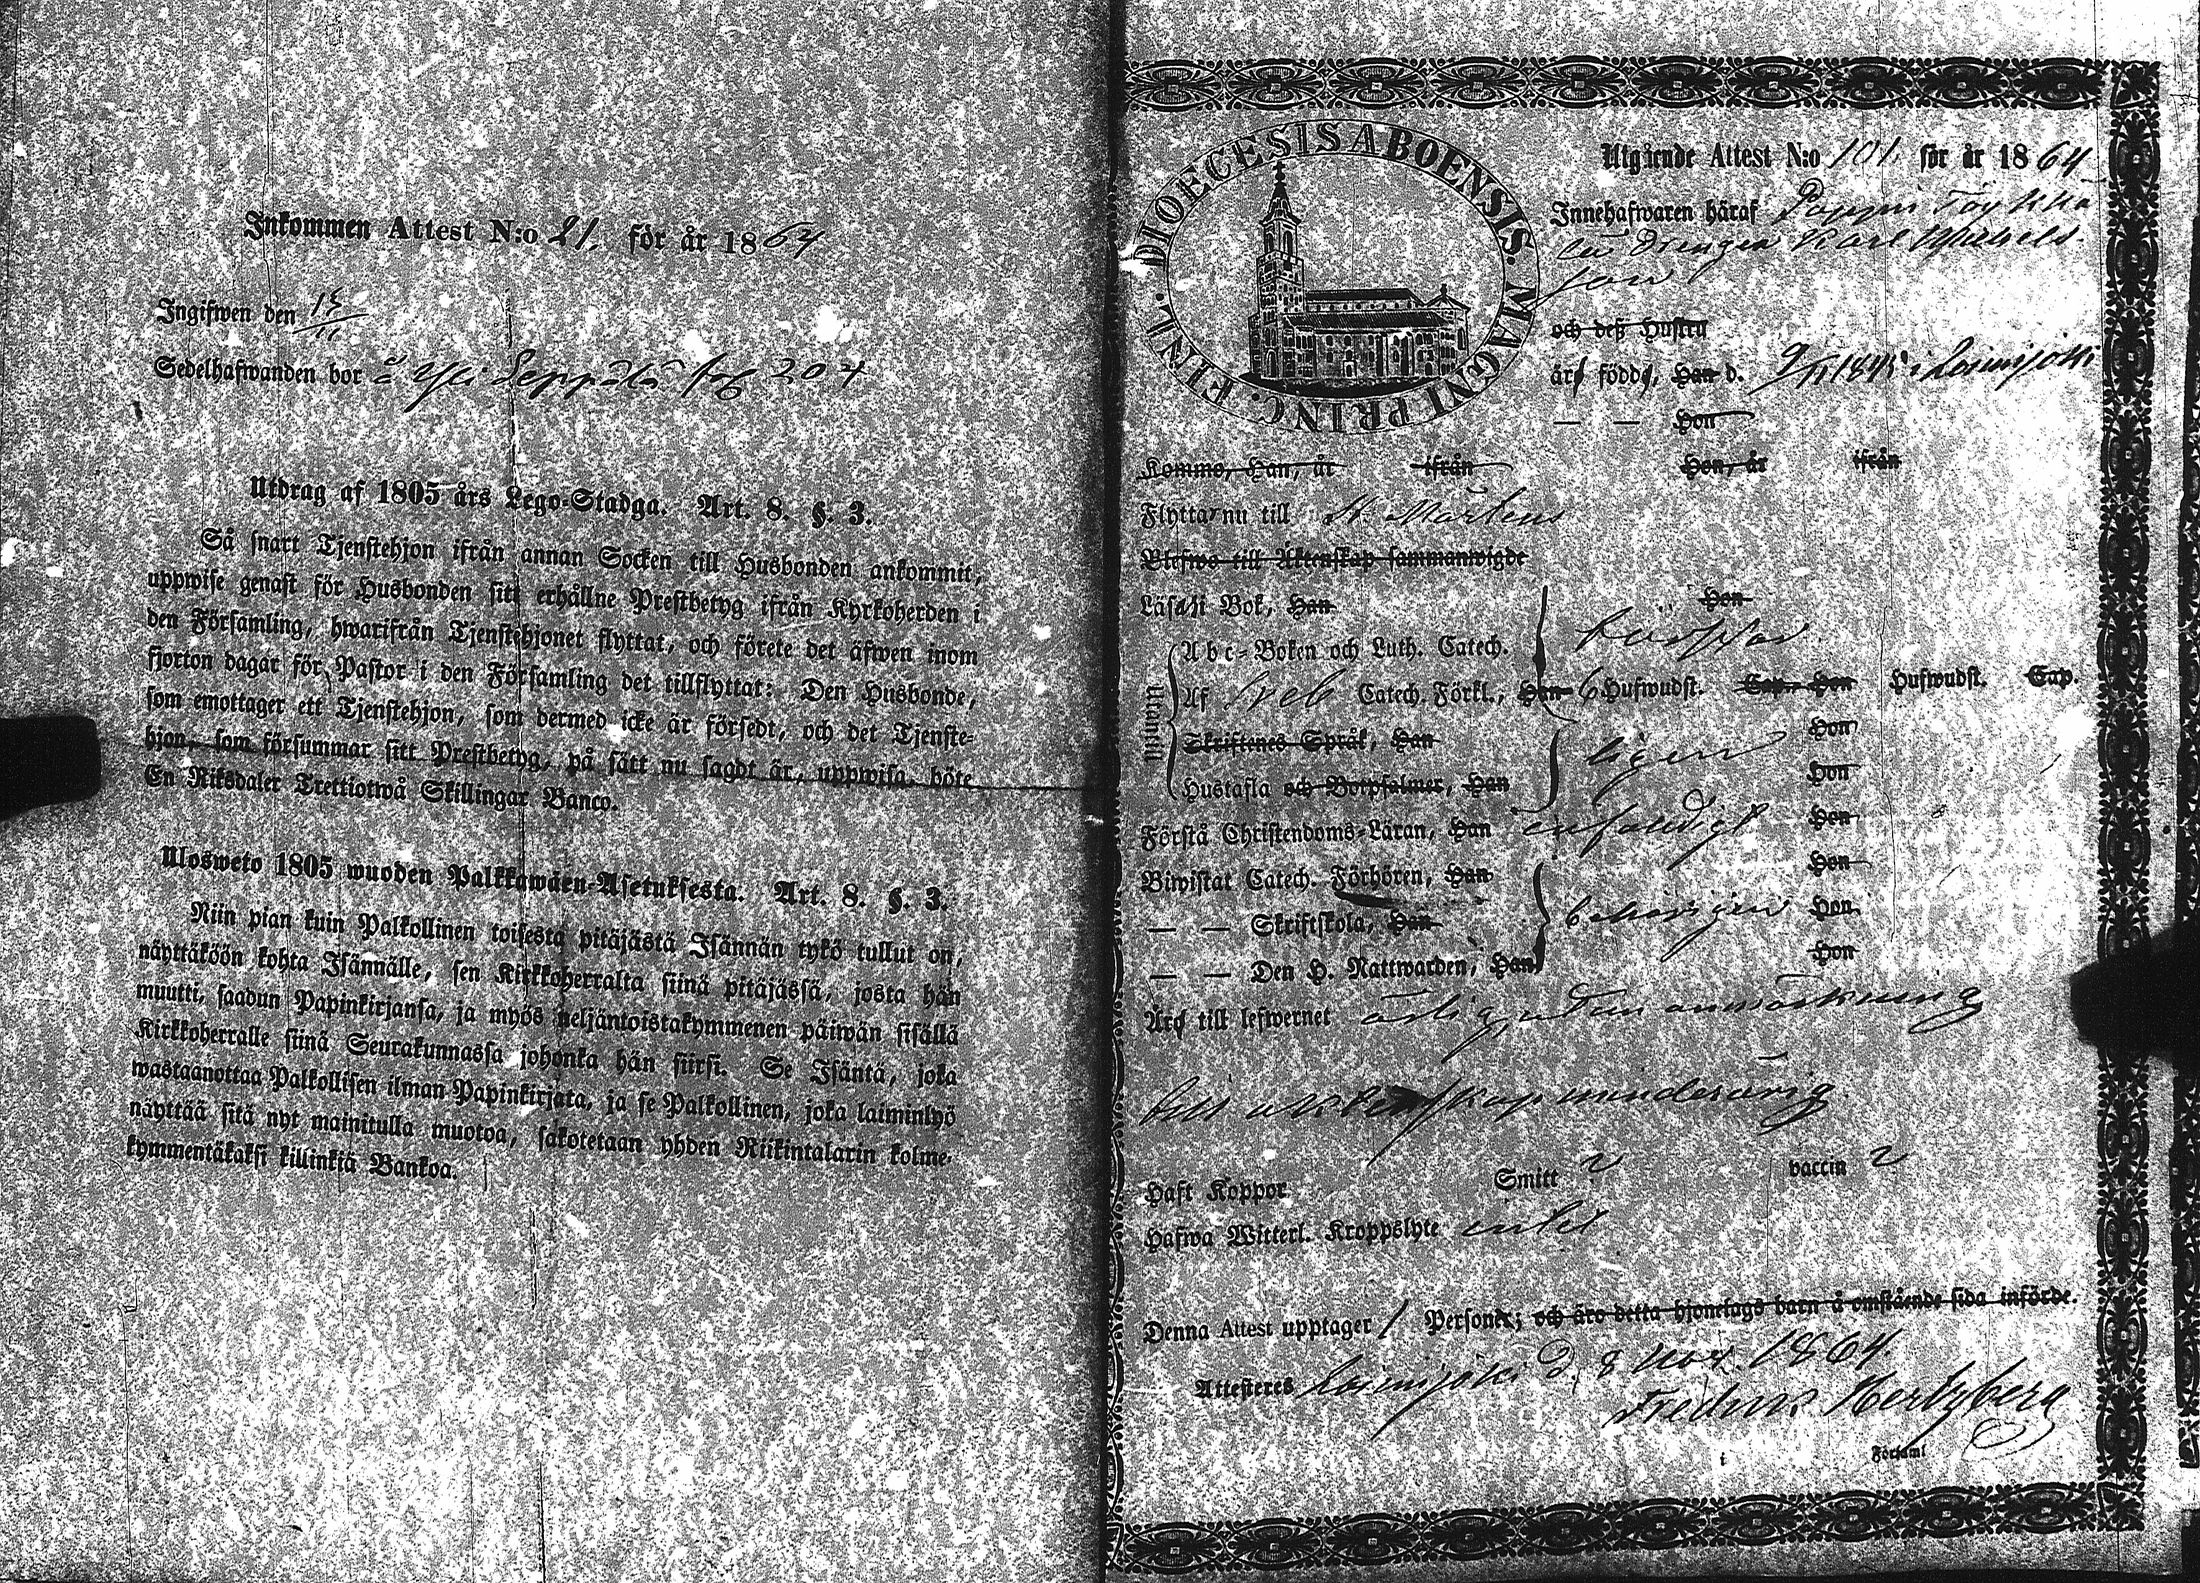 Inkommen Attest N:o 21. för år 1864
Ingifwen den 15/11
Sedelhafwanden bor å Yli Seppälä pag 204
Utdrag af 1805 års Lego-Stadga. Art. 8. §. 3.
Så snart Tjenstehjon ifrån annan Socken till Husbonden ankommit,
uppwise genast för Husbonden sitt erhållne Prestbetyg ifrån Kyrkoherden i
den Församling, hwarifrån Tjenstehjonet flyttat, och förete det äfwen inom
fjorton dagar för Pastor i den Församling det tillflyttat: Den Husbonde,
som emottager ett Tjenstehjon, som dermed icke är försedt, och det Tjenste-
hjon, som försummar sitt Prestbetyg, på sätt nu sagdt är, uppwisa, böte
En Riksdaler Trettiotwå Skillingar Banco.
Ulosweto 1805 wuoden Palkkawäen-Asetuksesta. Art. 8. §. 3.
Niin pian kuin Palkollinen toisesta pitäjästä Isännän tykö tullut on,
näyttäköön kohta Isännälle, sen Kirkkoherralta siinä pitäjässä, josta hän
muutti, saadun Papinkirjansa, ja myös neljäntoistakymmenen päiwän sisällä
Kirkkoherralle siinä Seurakunnassa johonka hän siirsi. Se Isäntä, joka
wastaanottaa Palkollisen ilman Papinkirjata, ja se Palkollinen, joka laiminlyö
näyttää sitä nyt mainitulla muotoa, sakotetaan yhden Riikintalarin kolme-
kymmentäkaksi killinkiä Bankoa.
DIOECESIS ABOENSIS. MAGNI PRINC. FINL.
Utgående Attest N:o 101. för år 1864
Innehafwaren häraf
Drengen Karl Michels-
son
och deß Hustru
är född, Han d. 9/11 1845 i Loimijoki
— — Hon
Kommo, Han, år ifrån Hon, år ifrån
Flyttar nu till St Mårtens
Blefwo till Äktenskap sammanwigde
Läser i Bok, Han Hon
Abc-Boken och Luth. Catech. kärfvar
Utantill
Af Sveb Catech. Förkl., Han 6 Hufwudst. Cap., Hon Hufwudst. Cap.
Skriftenes Språk, Han Hon
Hustafla och Botpsalmer, Han ligen Hon
Förstå Christendoms-Läran, Han enfaldigt Hon
Biwistat Catech. Förhören, Han Hon
— — Skriftskola, Han behörigen Hon
— — Den H. Nattwarden, Han Hon
Är till lefwernet ärlig, utan anmärkning
till äktenskap minderårig
Haft Koppor Smitt vaccin
Hafwa Witterl. Kroppslyte intet
Denna Attest upptager 1 Person; och äro detta hjonelags barn å omstående sida införde.
Attesteres Loimijoki d. 8 Nov. 1864.
Hertzberg
Församl